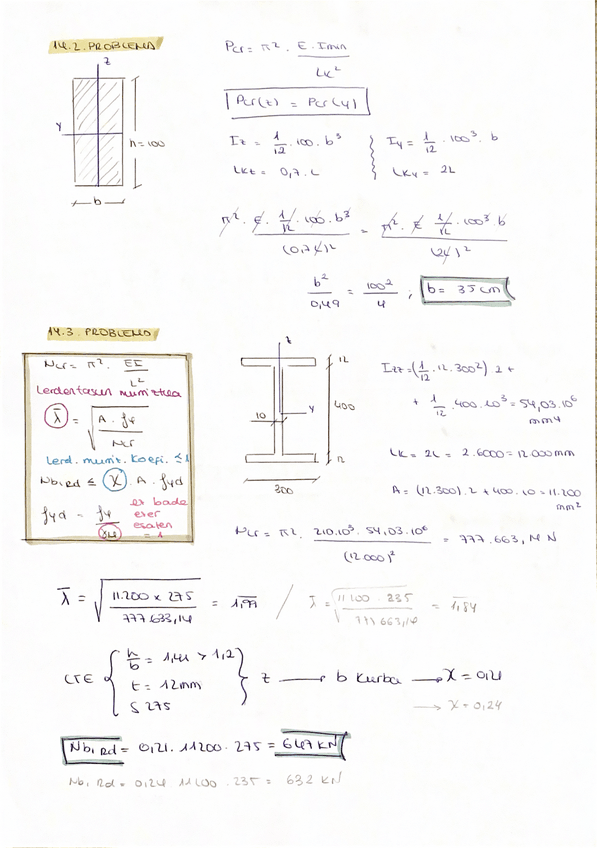 14.2. PROBLEMA
z
y
h = 100
b
Pcr = π² . E . Imin / Lk²
Pcr(z) = Pcr(y)
Iz = 1/12 . 100 . b³
Iy = 1/12 . 100³ . b
Lkz = 0,7 . L
Lky = 2L
π² . E . 1/12 . 100 . b³ / (0,7L)² = π² . E 1/12 . 100³ . b / (2L)²
b²/0,49 = 100²/4 ; b = 35 cm
14.3. PROBLEMA
Ncr = π² . EI / L²
Lerdentasun murriztua
λ̄ = √(A . fy / Ncr)
Lerd. murrit. koefi. ≤ 1
Nb,Rd ≤ χ . A . fyd
fyd = fy / γM
ez bada
ezer
esaten
= 1
z
y
12
400
10
12
300
Izz = (1/12 . 12 . 300³) 2 +
+ 1/12 . 400 . 10³ = 54,03 . 10⁶ mm4
LK = 2L = 2 . 6000 = 12 000 mm
A = (12.300) . 2 + 400 . 10 = 11.200 mm²
Ncr = π² . 210.10³ . 54,03 . 10⁶ / (12 000)² = 777.663,14 N
λ̄ = √(11.200 x 275 / 777.633,14) = 1,99 / λ̄ = √(11 100 . 235 / 777 663,14) = 1,84
CTE { h/b = 1,41 > 1,2
t = 12mm
S 275 } z → b kurba → χ = 0,21
→ χ = 0,24
Nb,Rd = 0,21 . 11200 . 275 = 647 KN
Nb, Rd = 0,24 11200 . 235 = 632 KN